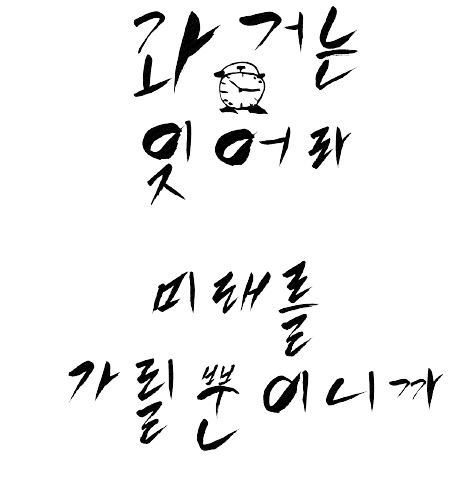 과거는
잊어라
미래를
가릴뿐이니까